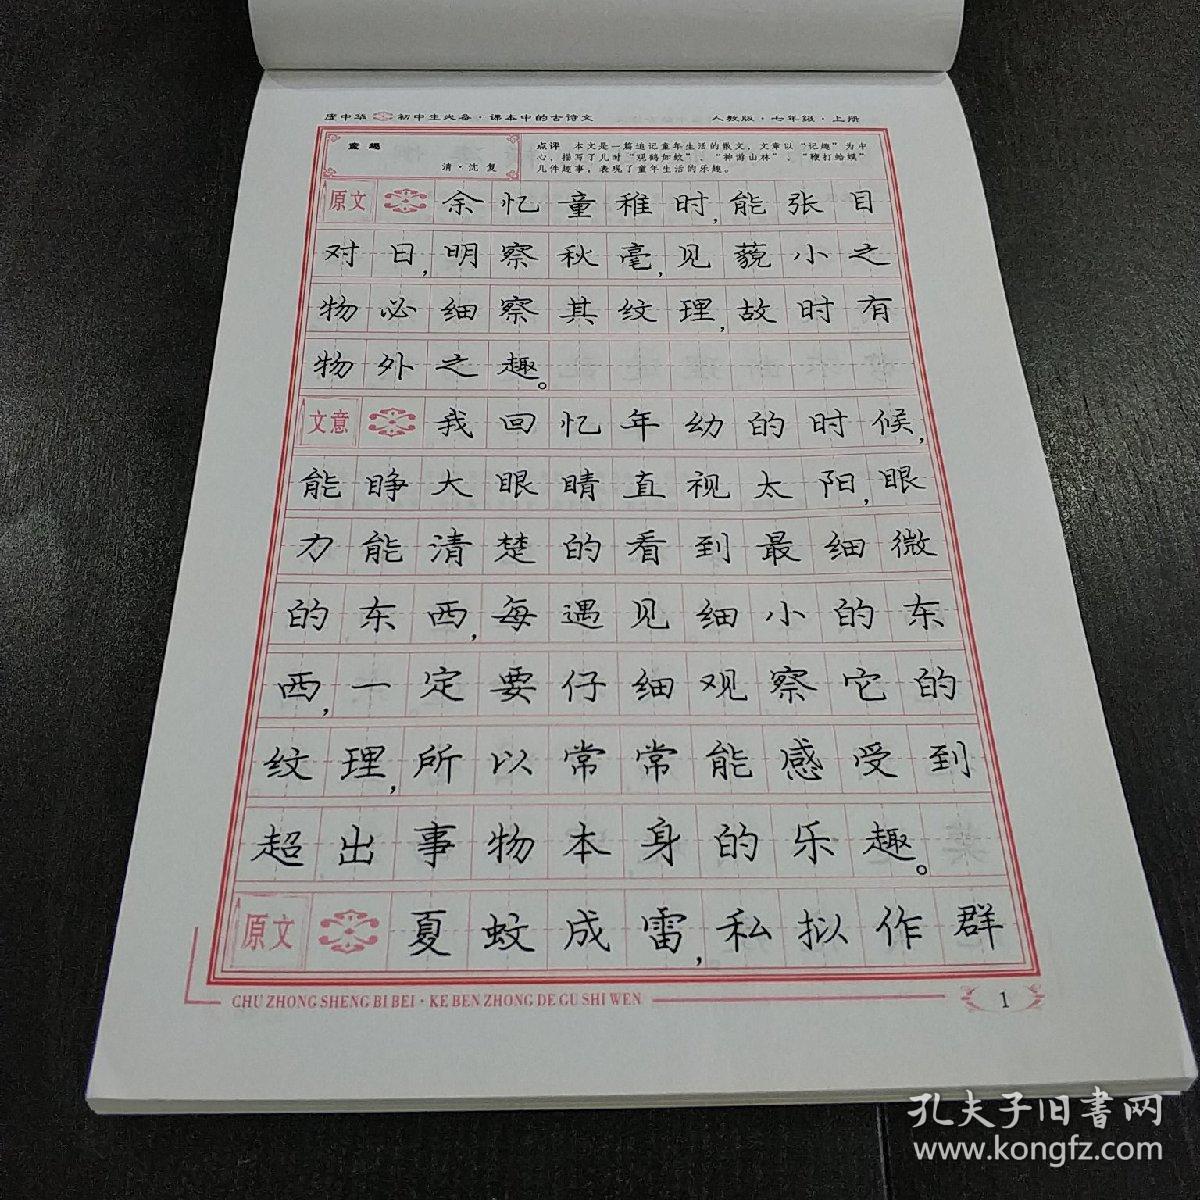 庞中华 初中生必备·课本中的古诗文 人教版·七年级·上册
童趣
清·沈复
点评 本文是一篇追记童年生活的散文，文章以“记趣”为中
心，描写了儿时“观鹤如蚊”、“神游山林”、“鞭打蛤蟆”
几件趣事，表现了童年生活的乐趣。
原文 余忆童稚时,能张目
对日,明察秋毫,见藐小之
物必细察其纹理,故时有
物外之趣。
文意 我回忆年幼的时候,
能睁大眼睛直视太阳,眼
力能清楚的看到最细微
的东西,每遇见细小的东
西,一定要仔细观察它的
纹理,所以常常能感受到
超出事物本身的乐趣。
原文 夏蚊成雷,私拟作群
CHU ZHONG SHENG BI BEI · KE BEN ZHONG DE GU SHI WEN 1
孔夫子旧書网
www.kongfz.com